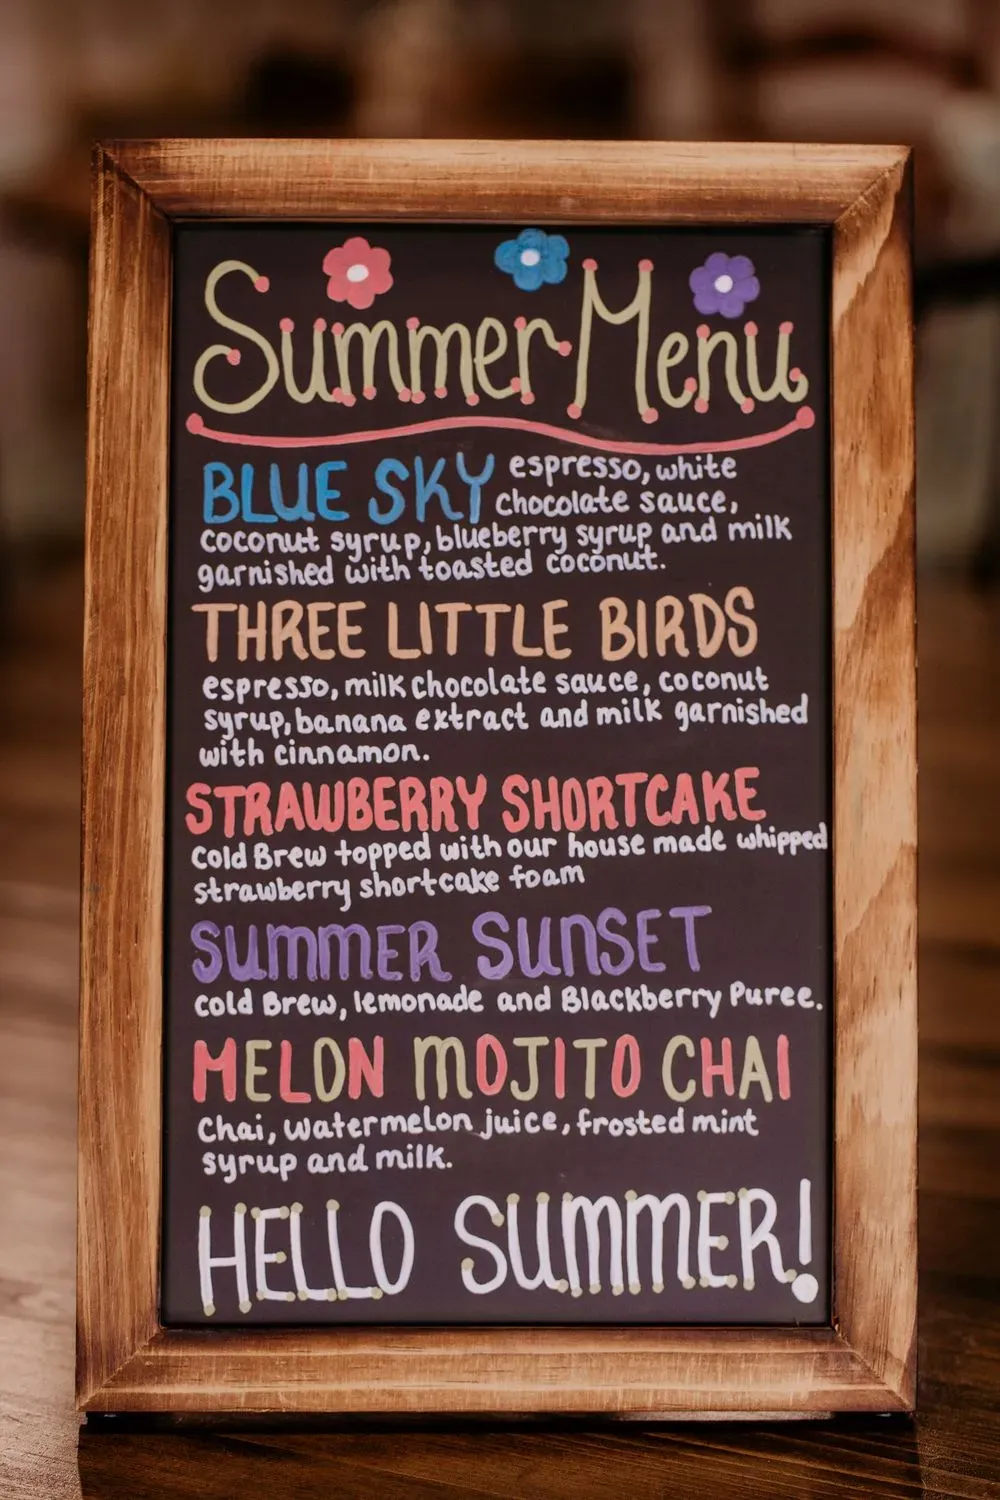 Summer Menu
BLUE SKY espresso, white
chocolate sauce,
coconut syrup, blueberry syrup and milk
garnished with toasted coconut.
THREE LITTLE BIRDS
espresso, milk chocolate sauce, coconut
syrup, banana extract and milk garnished
with cinnamon.
STRAWBERRY SHORTCAKE
Cold Brew topped with our house made whipped
strawberry shortcake foam
SUMMER SUNSET
Cold Brew, lemonade and Blackberry Puree.
MELON MOJITO CHAI
Chai, watermelon juice, frosted mint
syrup and milk.
HELLO SUMMER!